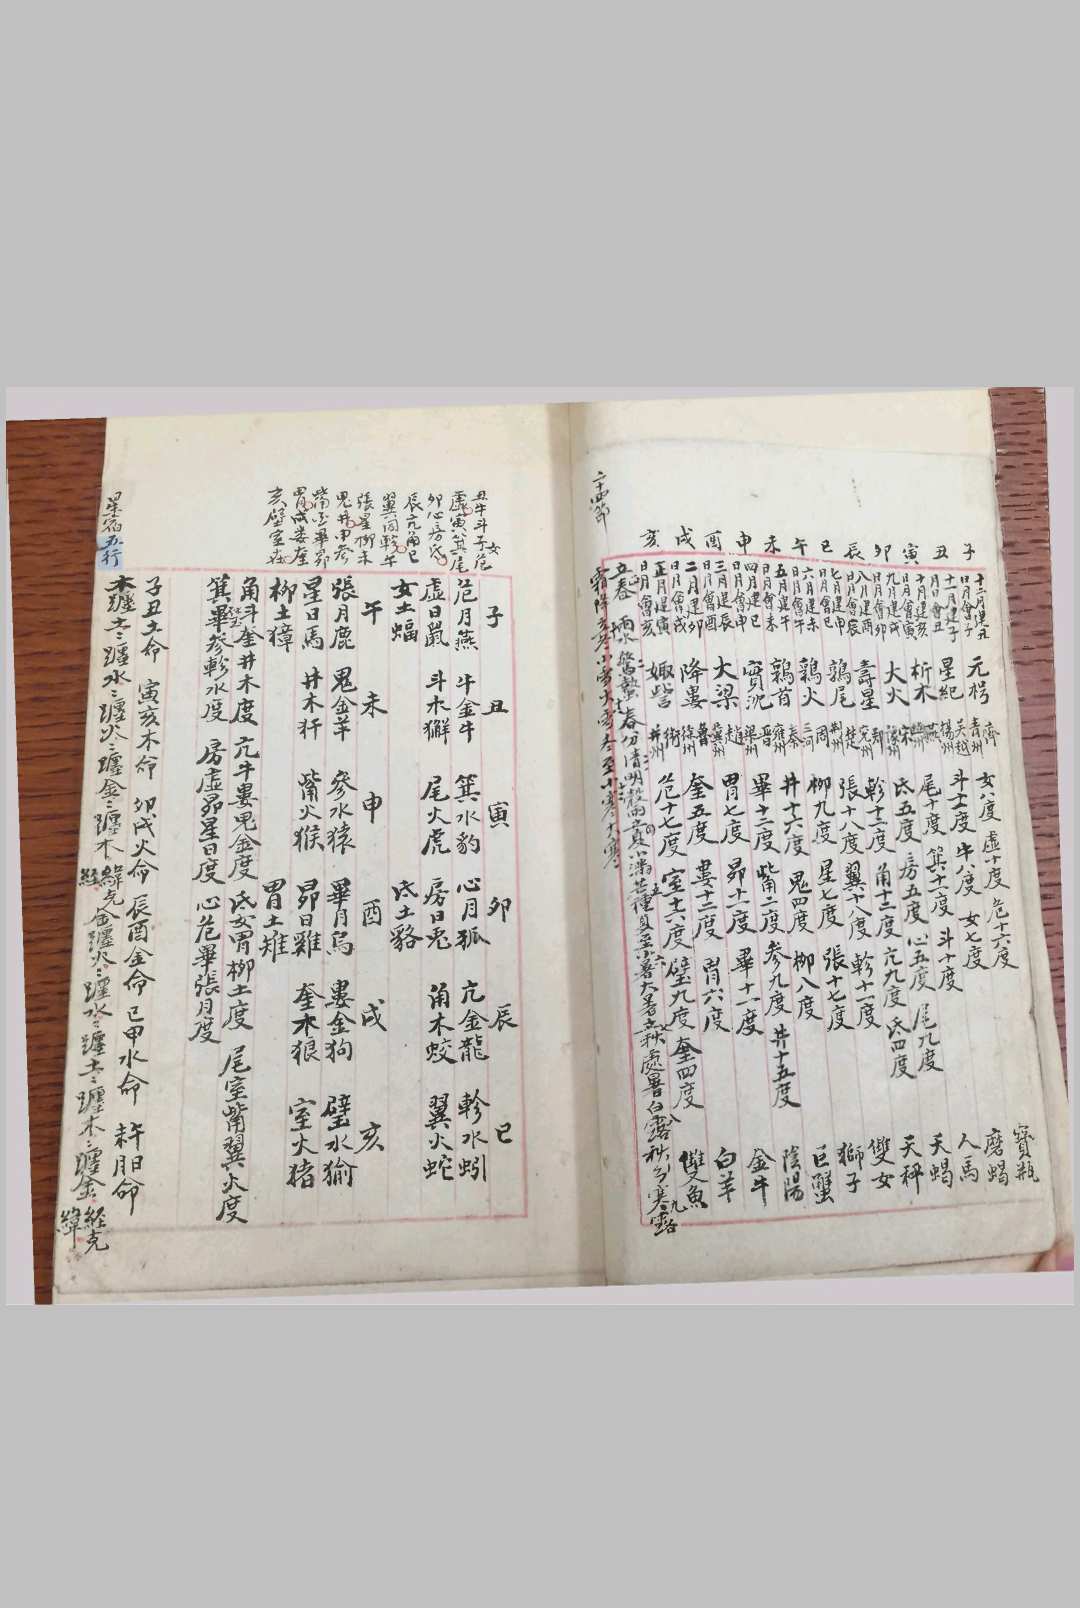 子 丑 寅 卯 辰 巳 午 未 申 酉 戌 亥
十二月建丑 日月會子 元枵 齊 青州 女八度 虛十度 危十六度 寶瓶
十一月建子 日月會丑 星紀 吳越 揚州 斗十二度 牛八度 女七度 磨蝎
十月建亥 日月會寅 析木 燕 幽州 尾十度 箕十一度 斗十度 人馬
九月建戌 日月會卯 大火 宋 豫州 氐五度 房五度 心五度 尾九度 天蝎
八月建酉 日月會辰 壽星 鄭 兗州 軫十二度 角十二度 亢九度 氐四度 天秤
七月建申 日月會巳 鶉尾 楚 荆州 張十八度 翼十八度 軫十一度 雙女
六月建未 日月會午 鶉火 周 三河 柳九度 星七度 張十七度 獅子
五月建午 日月會未 鶉首 秦 雍州 井十六度 鬼四度 柳八度 巨蟹
四月建巳 日月會申 實沈 晉 梁州 畢十二度 觜二度 參九度 井十五度 陰陽
三月建辰 日月會酉 大梁 趙 冀州 胃七度 昴十一度 畢十一度 金牛
二月建卯 日月會戌 降婁 魯 徐州 奎五度 婁十二度 胃六度 白羊
正月建寅 日月會亥 娵訾 衛 并州 危十七度 室十六度 壁九度 奎四度 雙魚
二十四節
立春 雨水 驚蟄 春分 清明 穀雨 立夏 小滿 芒種 夏至 小暑 大暑 立秋 處暑 白露 秋分 寒露
霜降 立冬 小雪 大雪 冬至 小寒 大寒
丑牛斗子女危
虛寅箕尾
卯心房氐
辰亢角巳
翼同軫午
張星柳未
鬼井申參
觜酉畢昴
胃戌婁奎
亥壁室
子 丑 寅 卯 辰 巳
危月燕 牛金牛 箕水豹 心月狐 亢金龍 軫水蚓
虛日鼠 斗木獬 尾火虎 房日兎 角木蛟 翼火蛇
女土蝠 氐土貉
午 未 申 酉 戌 亥
張月鹿 鬼金羊 參水猿 畢月烏 婁金狗 壁水㺄
星日馬 井木犴 觜火猴 昴日雞 奎木狼 室火猪
柳土獐 胃土雉
角斗奎井木度 亢牛婁鬼金度 氐女胃柳土度 尾室觜翼火度
箕壁參軫水度 房虛昴星日度 心危畢張月度
子丑土命 寅亥木命 卯戌火命 辰酉金命 巳申水命 午未日月命
星宿五行
木躔土〻躔水〻躔火〻躔金〻躔木 緯克經 金躔火〻躔水〻躔土〻躔木〻躔金 經克緯